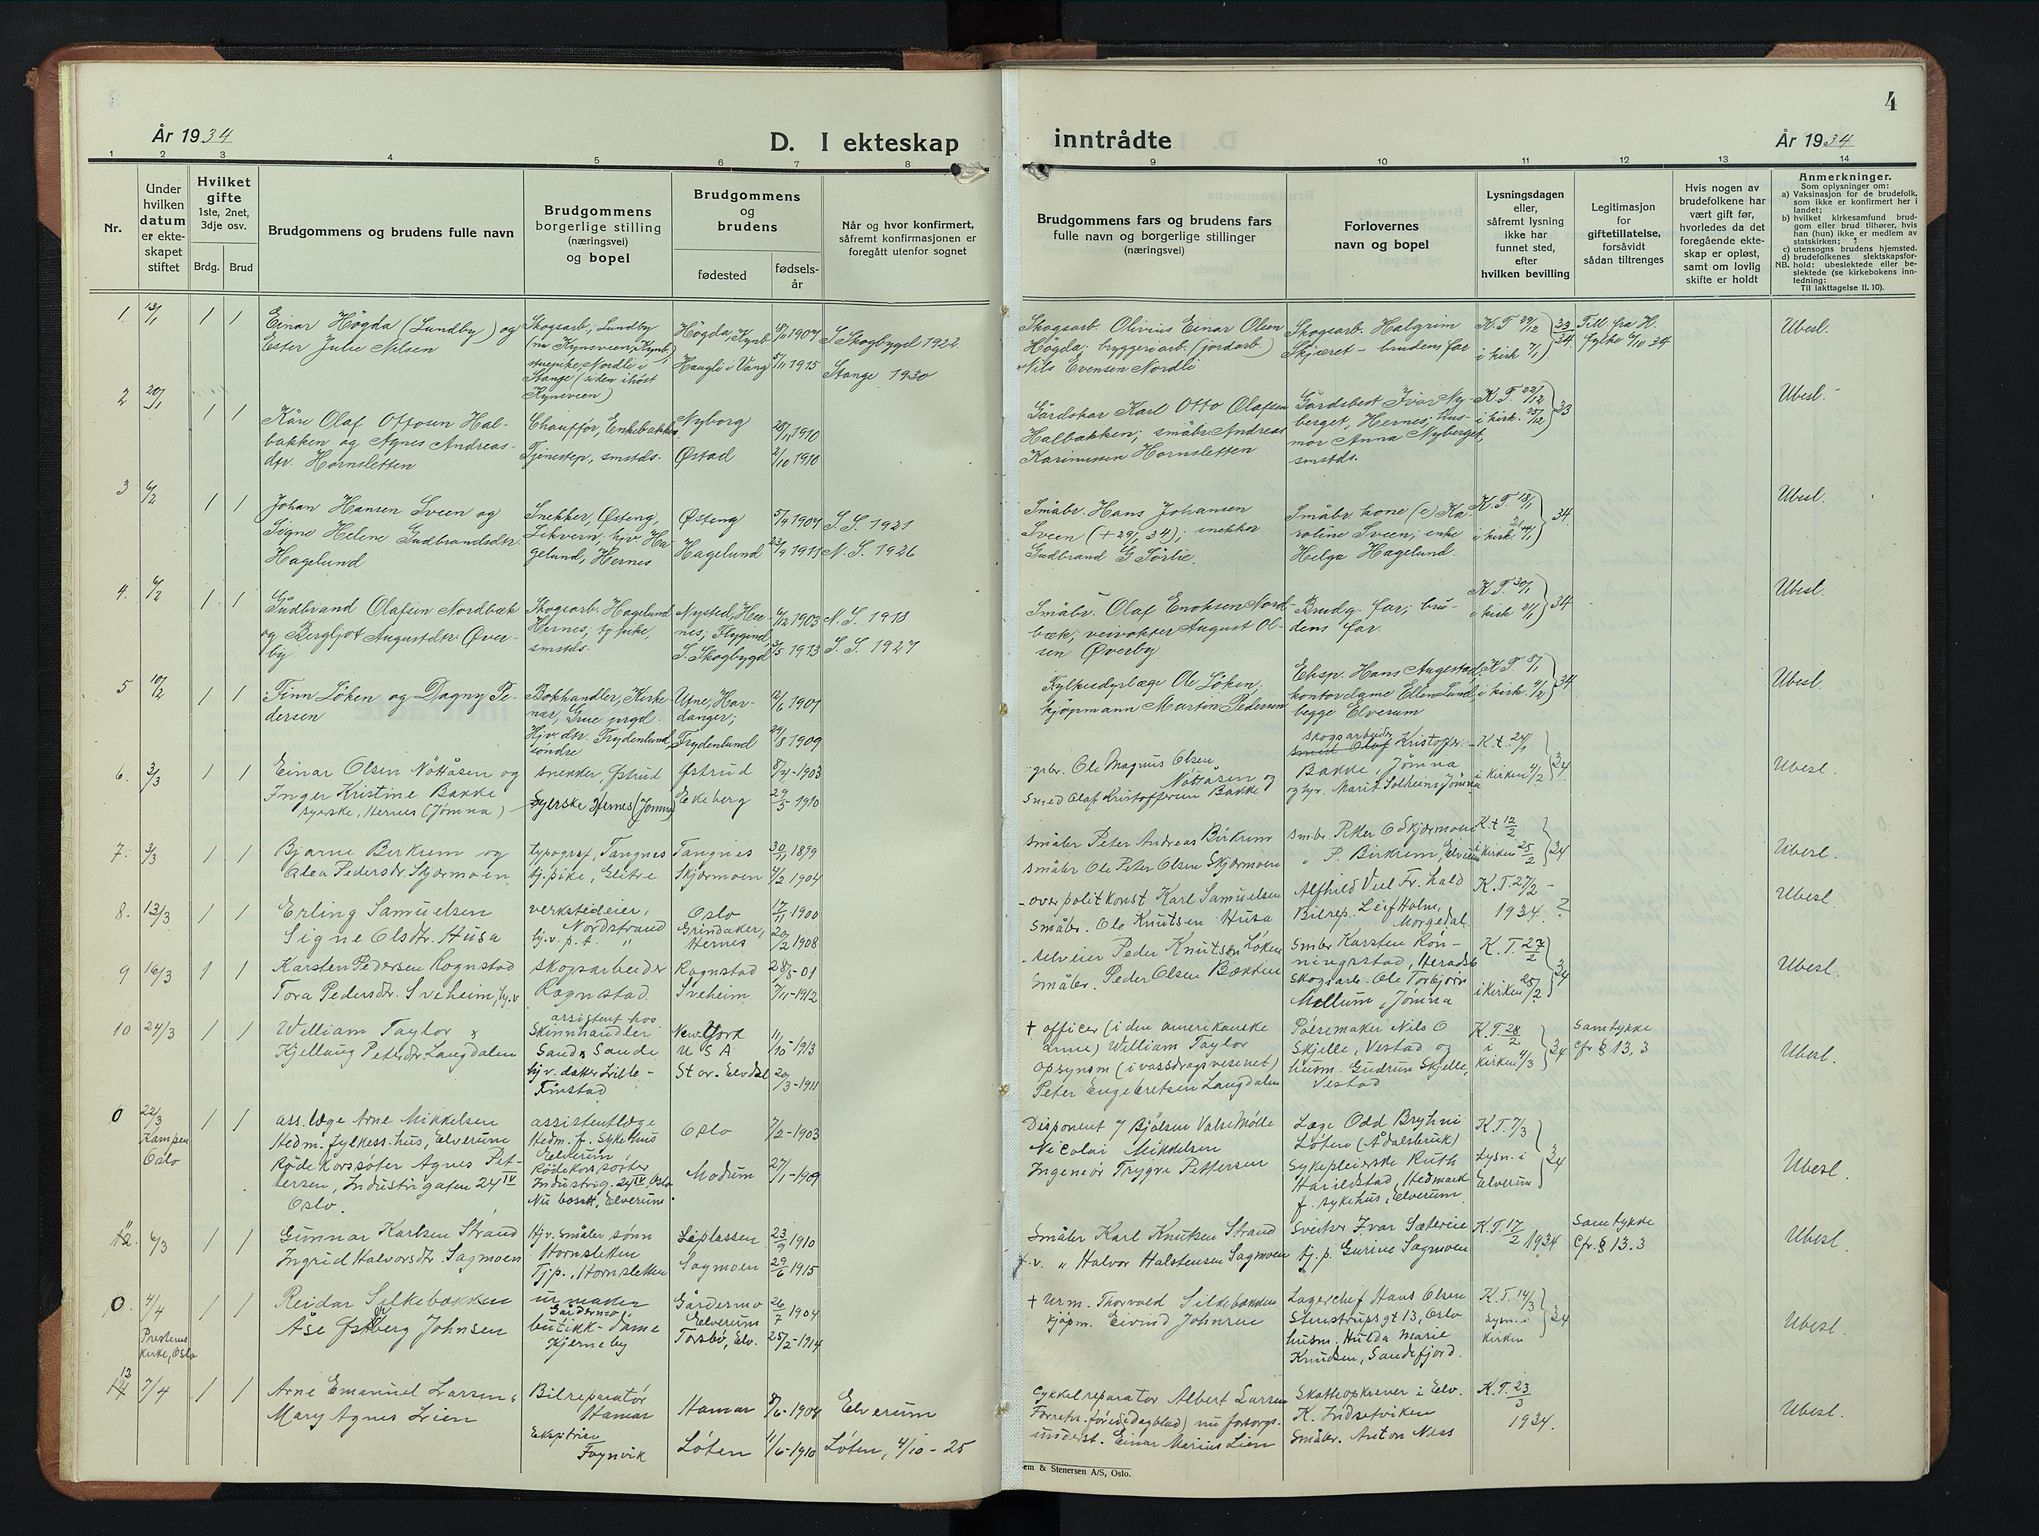 4
År 1934
D. I ekteskap
inntrådte
År 1934
1 2 3 4 5 6 7 8 9 10 11 12 13 14
Nr.
Under hvilken datum er ekteskapet stiftet
Hvilket gifte
1ste, 2net, 3dje osv.
Brdg. Brud
Brudgommens og brudens fulle navn
Brudgommens borgerlige stilling (næringsvei) og bopel
Brudgommens og brudens
fødested
fødselsår
Når og hvor konfirmert, såfremt konfirmasjonen er foregått utenfor sognet
Brudgommens fars og brudens fars fulle navn og borgerlige stillinger (næringsvei)
Forlovernes navn og bopel
Lysningsdagen eller, såfremt lysning ikke har funnet sted, efter hvilken bevilling
Legitimasjon for giftetillatelse, forsåvidt sådan tiltrenges
Hvis nogen av brudefolkene har vært gift før, hvorledes da det foregående ekteskap er opløst, samt om lovlig skifte er holdt
Anmerkninger.
Som oplysninger om:
a) Vaksinasjon for de brudefolk, som ikke er konfirmert her i landet;
b) hvilket kirkesamfund brudgom eller brud tilhører, hvis han (hun) ikke er medlem av statskirken;
c) utensogns brudens hjemsted.
d) brudefolkenes slektskapsforhold: ubeslektede eller beslektede (se kirkebokens innledning:
NB.
Til iakttagelse II. 10).
1. 13/1 1 1 Einar Høgda (Lundby) og
Ester Julie Nilsen
Skogsarb., Lundby
Stange (siden ihøst
Kynsveen)
Høgda, Kynb. 18/10 1907 S. Skogbygd 1922
Haugli i Vang 5/11 1915 Stange 1930
Skogsarb. Olivius Einar Olsen
Høgda; bryggeriarb. (jordarb.)
Nils Evensen Nordli
Skogsarb. Halgrim
Skjæret - brudens far
K.T. 29/12
i kirk 7/1
33/34
Till. fra H.
fylke 6/10 34
Ubesl.
2 20/1 1 1 Kåre Olaf Ottosen Hal-
bakken og Agnes Andreas-
dtr. Hornsletten
Chauffør, Enkebakken
Tjenestep., smstds.
Nyborg 28/11 1910
Østad 2/10 1910
Gårdbkar Karl Otto Olafsen
Halbakken; småbr. Andreas
Karinussen Hornsletten
Gårdsbest Ivar Ny-
berget, Hernes; hus-
mor Anna Nyberget,
smstds.
K.T. 22/12
i kirk. 25/12
33
Ubesl.
3 6/2 1 1 Johan Hansen Sveen og
Signe Helene Gudbrandsdtr.
Hagelund
Snekker, Østeng,
Lekvern; hjv. Ha-
gelund, Hernes
Østeng 5/9 1907 S.S. 1921
Hagelund 23/9 1911 N.S. 1926
Småbr. Hans Johansen
Sveen (+29/1 34); snekker
Gudbrand G. Sørlie.
Småbr. kone (e) Ka-
roline Sveen; enke
Helga Hagelund.
K.T. 18/1
i kirk. 21/1
34
Ubesl.
4. 6/2 1 1 Gudbrand Olafsen Nordbæk
og Bergljot Augustdtr. Øver-
by
Skogsarb. Hagelund
Hernes; tj. pike,
smstds.
Nysted, Her-
nes; Flygind,
S. Skogbygd
6/12 1903 N.S. 1918
3/5 1913 S.S. 1927
Småbr. Olaf Enoksen Nord-
bæk; veivokter August Ol-
sen Øverby
Brudg. far; bru-
dens far.
K.T. 30/1
i kirk 21/1
34
Ubesl.
5 10/2 1 1 Finn Løken og Dagny Pe-
dersen
Bokhandler, Kirke-
nær, Grue prgd.
Hjv. dtr. Frydenlund,
søndre
Utne, Har-
danger;
Frydenlund
12/6 1907
29/8 1909
Fylkesdyrlæge Ole Løken,
kjøpmann Marton Pedersen
Eksp. Hans Augestad,
kontordame Ellen Lund,
begge Elverum
K.T. 8/1
i kirk. 4/2
34
Ubesl.
6. 3/3 1 1 Einar Olsen Nøttåsen og
Inger Kristine Bakke
syerske, Hernes (Jømna)
snekker, Østrud
Syerske Hernes (Jømna)
Østrud 8/4-1903
Ekeberg 29/5 1910
grbr. Ole Magnus Olsen
Nøttåsen og
smed Olaf Kristoffersen Bakke
skogsarbeider
smed Olaf Kristoffer.
Bakke, Jømna
og hv. Marit Solheim, Jømna
K.t. 24/1
i kirken 4/2
34
Ubesl.
7. 3/3 1 1 Bjarne Birkrem og
Olea Pedersdtr. Skjærmoen
typograf, Tangnes
tj. pike, Glitre
Tangnes 30/11 1899
Skjærmoen 4/2 1904
småbr Peter Andreas Birkrem
småbr Ole Peter Olsen Skjærmoen
smbr. Petter O Skjærmoen
" P. Birkrem, Elverum
K.t 12/2
i kirken 25/2
34
Ubesl.
8. 13/3 1 1 Erling Samuelsen
Signe Olsdtr. Husa
verkstedeier,
Nordstrand
hj.v. p.t. "
Oslo 17/11 1900
Grindaker,
Hernes
20/2 1908
- overpolitkonst Karl Samuelsen
Småbr. Ole Knutsen Husa
Alfhild Veel Fr. Lald
Bilrep. Leif Holm,
Morgedal
K.T. 27/2 -
1934. ?
Ubesl.
9 16/3 1 1 Karsten Pedersen Rognstad
Tora Pedersdtr. Sveheim, hj.v
skogsarbeider
Rognstad
Rognstad 28/5-01
Sveheim 7/11-1912
selveier Peder Knutsen Løken
Småbr. Peder Olsen Bækken
Smbr Karsten Røn-
ningstad, Heradsb
Skogsarb. Ole Torbjørn
Mellum, Jømna
K.T. 27/2
i kirken 25/2
34
Ubesl.
10 24/3 1 1 William Taylor &
Kjellaug Petersdtr Langdalen
assistent hos
Skinnhandler
Sand & Sande
hj.v. datter Lille-
Finstad
New York
USA 11/10-1913
Stor-Elvdal 20/3-1911
+ officer (i den amerikanske
arme) William Taylor
Opsynsm (i vassdragsvesenet)
Peter Engebretsen Langdalen
Pølsemaker Nils O
Skjelle, Vestad og
husm. Gudrun Skjelle,
Vestad
K.T. 28/2
i
kirken 4/3
34
Samtykke
cfr. § 13, 3
Ubesl.
0 22/3
Kampen
Oslo
1 1 ass. læge Arne Mikkelsen
Hedm. fylkess. hus, Elverum
Røde Korssøster Agnes Pet-
tersen, Industrigaten 24 IV
Oslo.
assistentlæge
Hedm. f. Sykehus
Elverum
Røde kors søster
Industrig. 24 IV, Oslo
Nu bosatt, Elverum.
Oslo 7/2-1903
Modum 27/1-1909
Disponent 7 Bjølsen Valsemølle
Nicolai Mikkelsen
Ingeneør Trygve Pettersen
Læge Odd Bryhni
Løten (Ådalsbruk)
Sykepleierske Ruth
Harildstad, Hedmark
f. sykehus, Elverum.
K.T. 7/3
Lysn. i
Elverum
34
Ubesl.
12. 6/3 1 1 Gunnar Karlsen Strand
Ingrid Halvorsdtr. Sagmoen
Hjv. Småbr sønn
Hornsletten
Tj.p., Hornsletten
Leplassen 23/9 1910
Sagmoen 29/6 1915
Småbr Karl Knutsen Strand
f.v. " Halvor Halstensen Sagmoen
Sveiser Ivar Sæterlie
tj. p. Gurine Sagmoen
K.T. 17/2 1934
Samtykke
Cfr. § 13.3
Ubesl.
0. 4/4
Prestenes
kirke, Oslo
1 1 Reidar Silkebækken
Åse Østberg Johnsen
urmaker
Gårdermo,
butikk-dame
Kjerneby
Gårdermo
Elverum
26/7 1904
Torsbø, Elv. 25/2-1914
+ Urm. Thorvald Sildebækken
Kjøpm. Eivind Johnsen
Lagerchef Hans Olsen
Stenstrupsgt 13, Oslo
husm. Hulda Marie
Knudsen, Sandefjord.
K.T. 14/3
Lysn. i
kirken
34
Ubesl.
13
14 7/4 1 1 Arne Emanuel Larsen &
Mary Agnes Lien
Bilreparatør
Hamar
Ekspitrise
Fagnvik
Hamar 8/6-1907 Elverum
Løten 11/6-1910 Løten, 4/10-25
Cykkelreparatør Albert Larsen
Einar Marius Lien
Skatteopkræver i Elv.
K. Indsetviken
Småbr. Anton Ness
K.T. 23/3
1934.
Ubesl.
em & Stenersen A/S, Oslo.